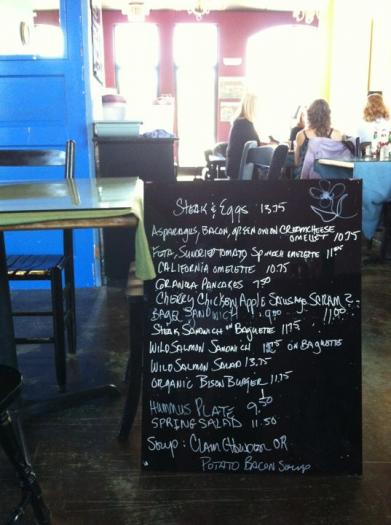 Steak & Eggs 13.75
Asparagus, Bacon, Green Onion Creamcheese
Omelet 10.75
Feta, Sundried Tomato Spinach Omelette 11.00
California Omelette 10.75
Granola Pancakes 7.50
Cherry Chicken Apple Sausage Scram
Bagel Sandwich 9.00 11.00
Steak Sandwich on Baguette 11.75
Wild Salmon Sandwich on Baguette
Wild Salmon Salad 13.75
Organic Bison Burger 11.75
Hummus Plate 9.50
Spring Salad 11.50
Soup: Clam Chowder OR
Potato Bacon Soup